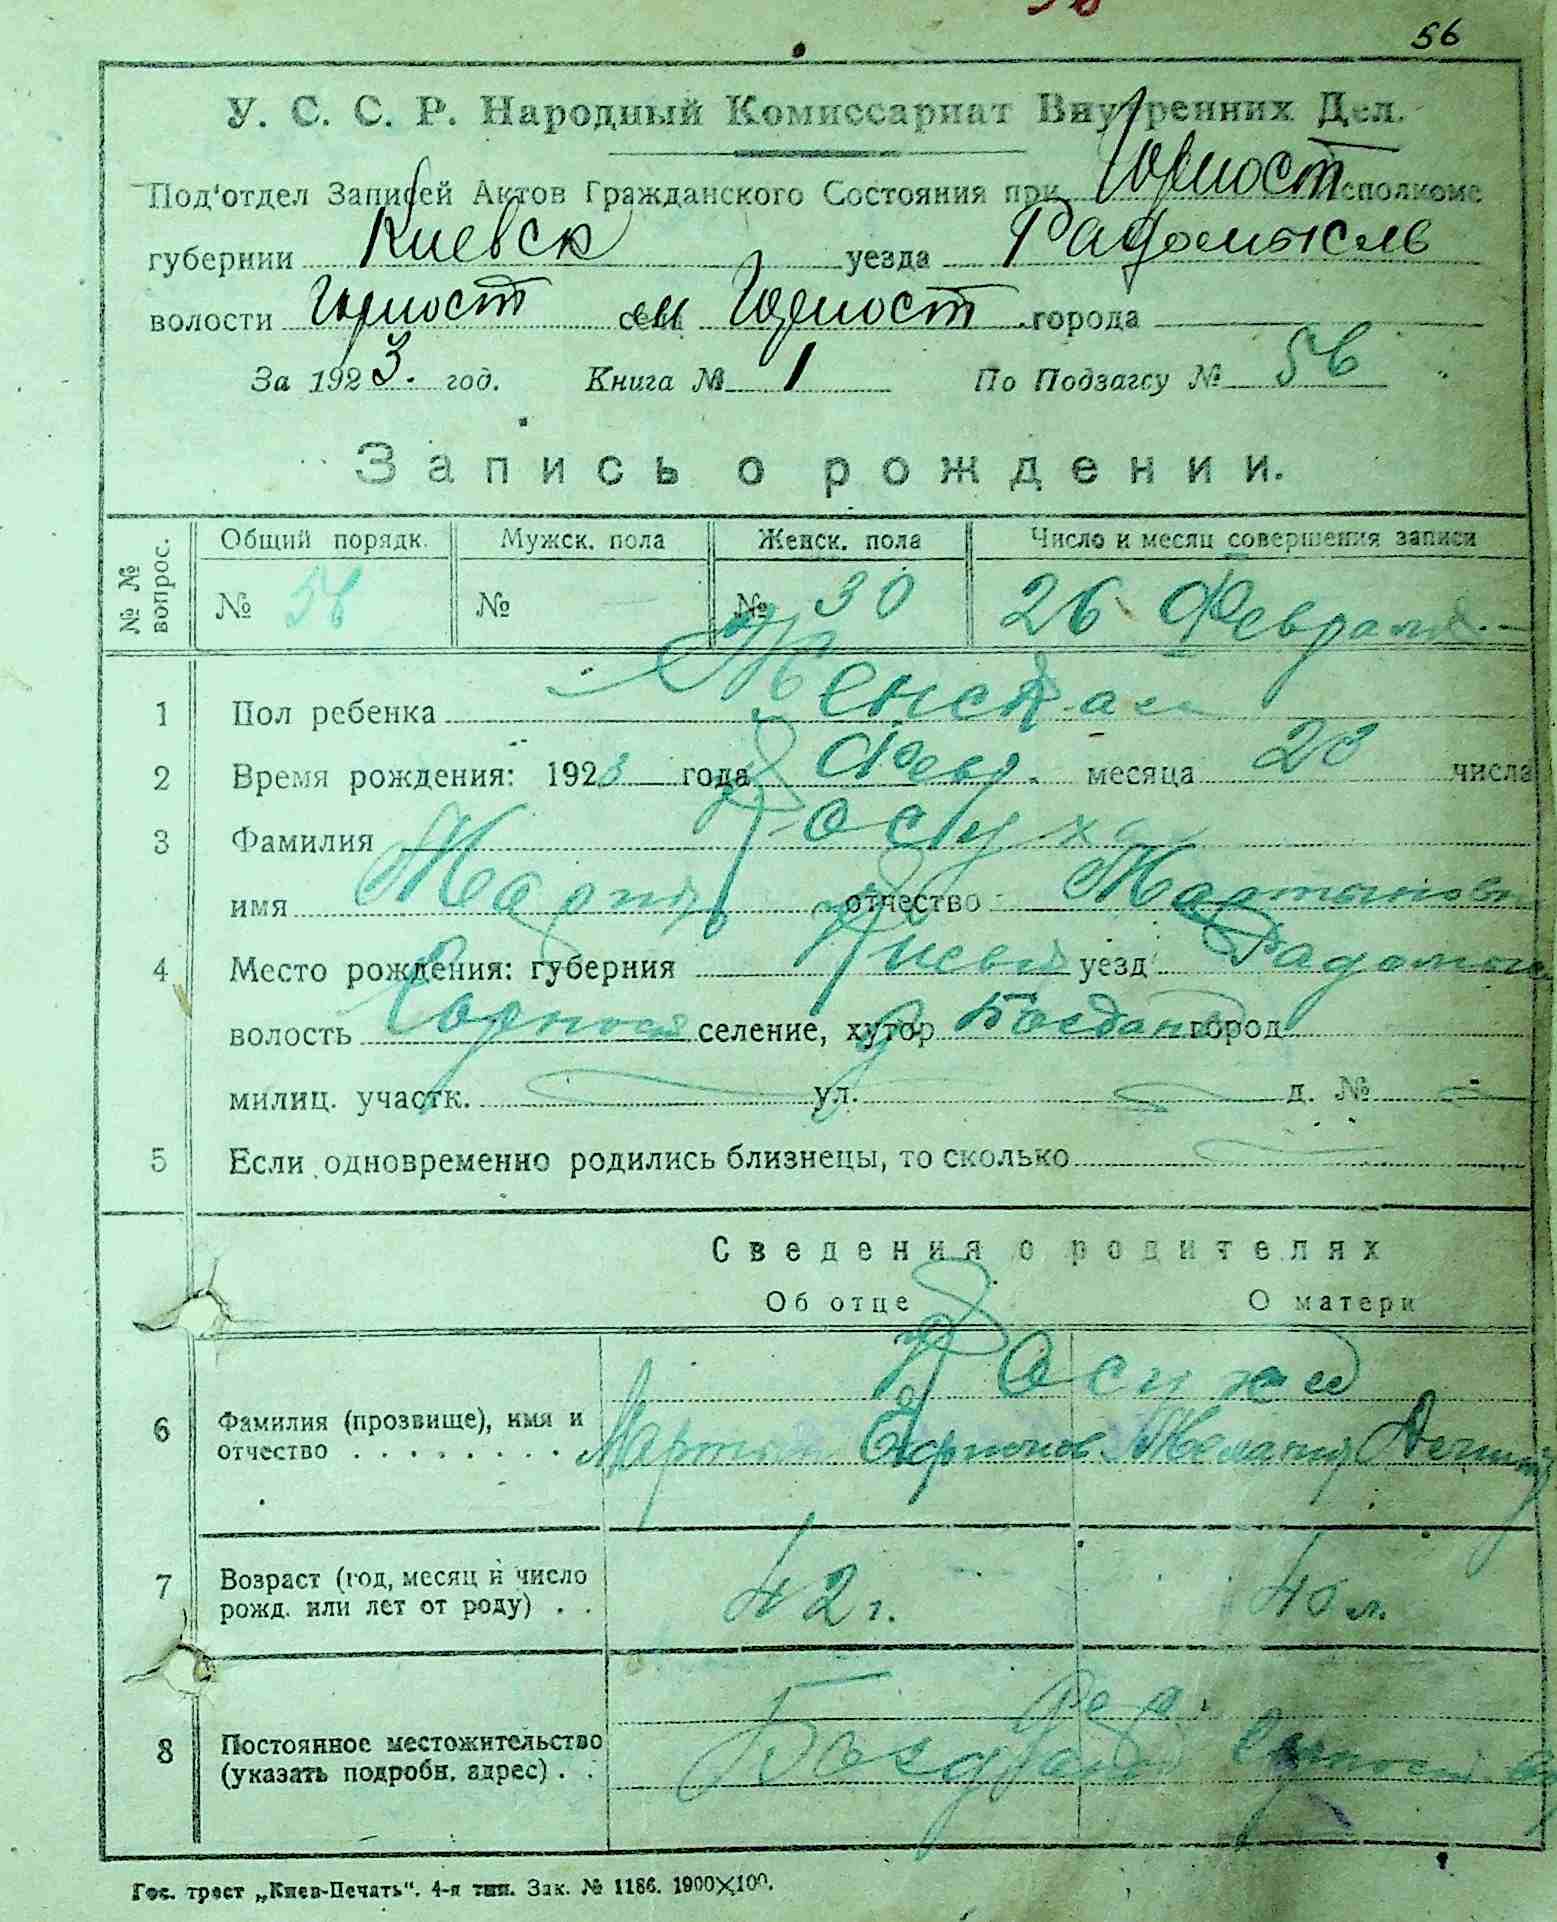 56
У. С. С. Р. Народный Комиссариат Внутренних Дел.
Под'отдел Записей Актов Гражданского Состояния при Горност исполкоме
губернии Киевск уезда Радомысль
волости Горност села Горност города
За 1923. год. Книга № 1 По Подзагсу № 56
Запись о рождении.
№ № вопрос.
Общий порядк. Мужск. пола Женск. пола Число и месяц совершения записи
№ 56 № № 30 26 Февраля
1 Пол ребенка Женская
2 Время рождения: 1923 года Февр. месяца 23 числа
3 Фамилия
имя Мария отчество Мартынов
4 Место рождения: губерния Киевск уезд Радомысл
волость Горност селение, хутор город
милиц. участк. ул. д. №
5 Если одновременно родились близнецы, то сколько
Сведения о родителях
Об отце О матери
6 Фамилия (прозвище), имя и
отчество . . . . . . . . Мартин
7 Возраст (год, месяц и число
рожд. или лет от роду) . . 42 г. 40 л.
8 Постоянное местожительство
(указать подробн. адрес) . .
Гос. трест „Киев-Печать“. 4-я тип. Зак. № 1186. 1900×100.